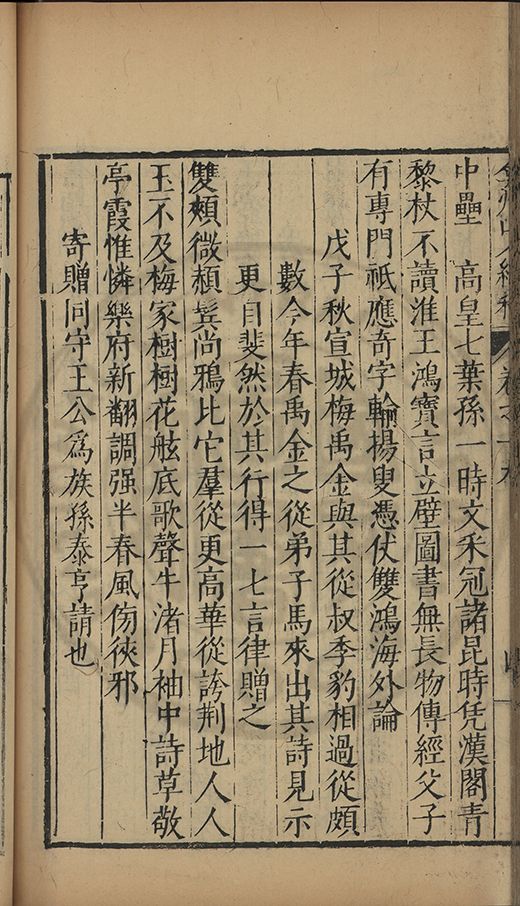 中壘　高皇七葉孫一時文采冠諸昆時凭漢閣青
藜杖不讀淮王鴻寶言立壁圖書無長物傳經父子
有專門祗應奇字輸揚叟憑仗雙鴻海外論
戊子秋宣城梅禹金與其從叔季豹相過從頗
數今年春禹金之從弟子馬來出其詩見示
更自斐然於其行得一七言律贈之
雙頰微頳鬂尚鴉比它羣從更高華從誇荆地人人
玉不及梅家樹樹花舷底歌聲牛渚月袖中詩草敬
亭霞惟憐樂府新翻調强半春風傍狹邪
寄贈同守王公爲族孫泰亨請也